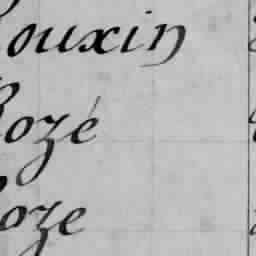 Rouxin
Rozé
Roze